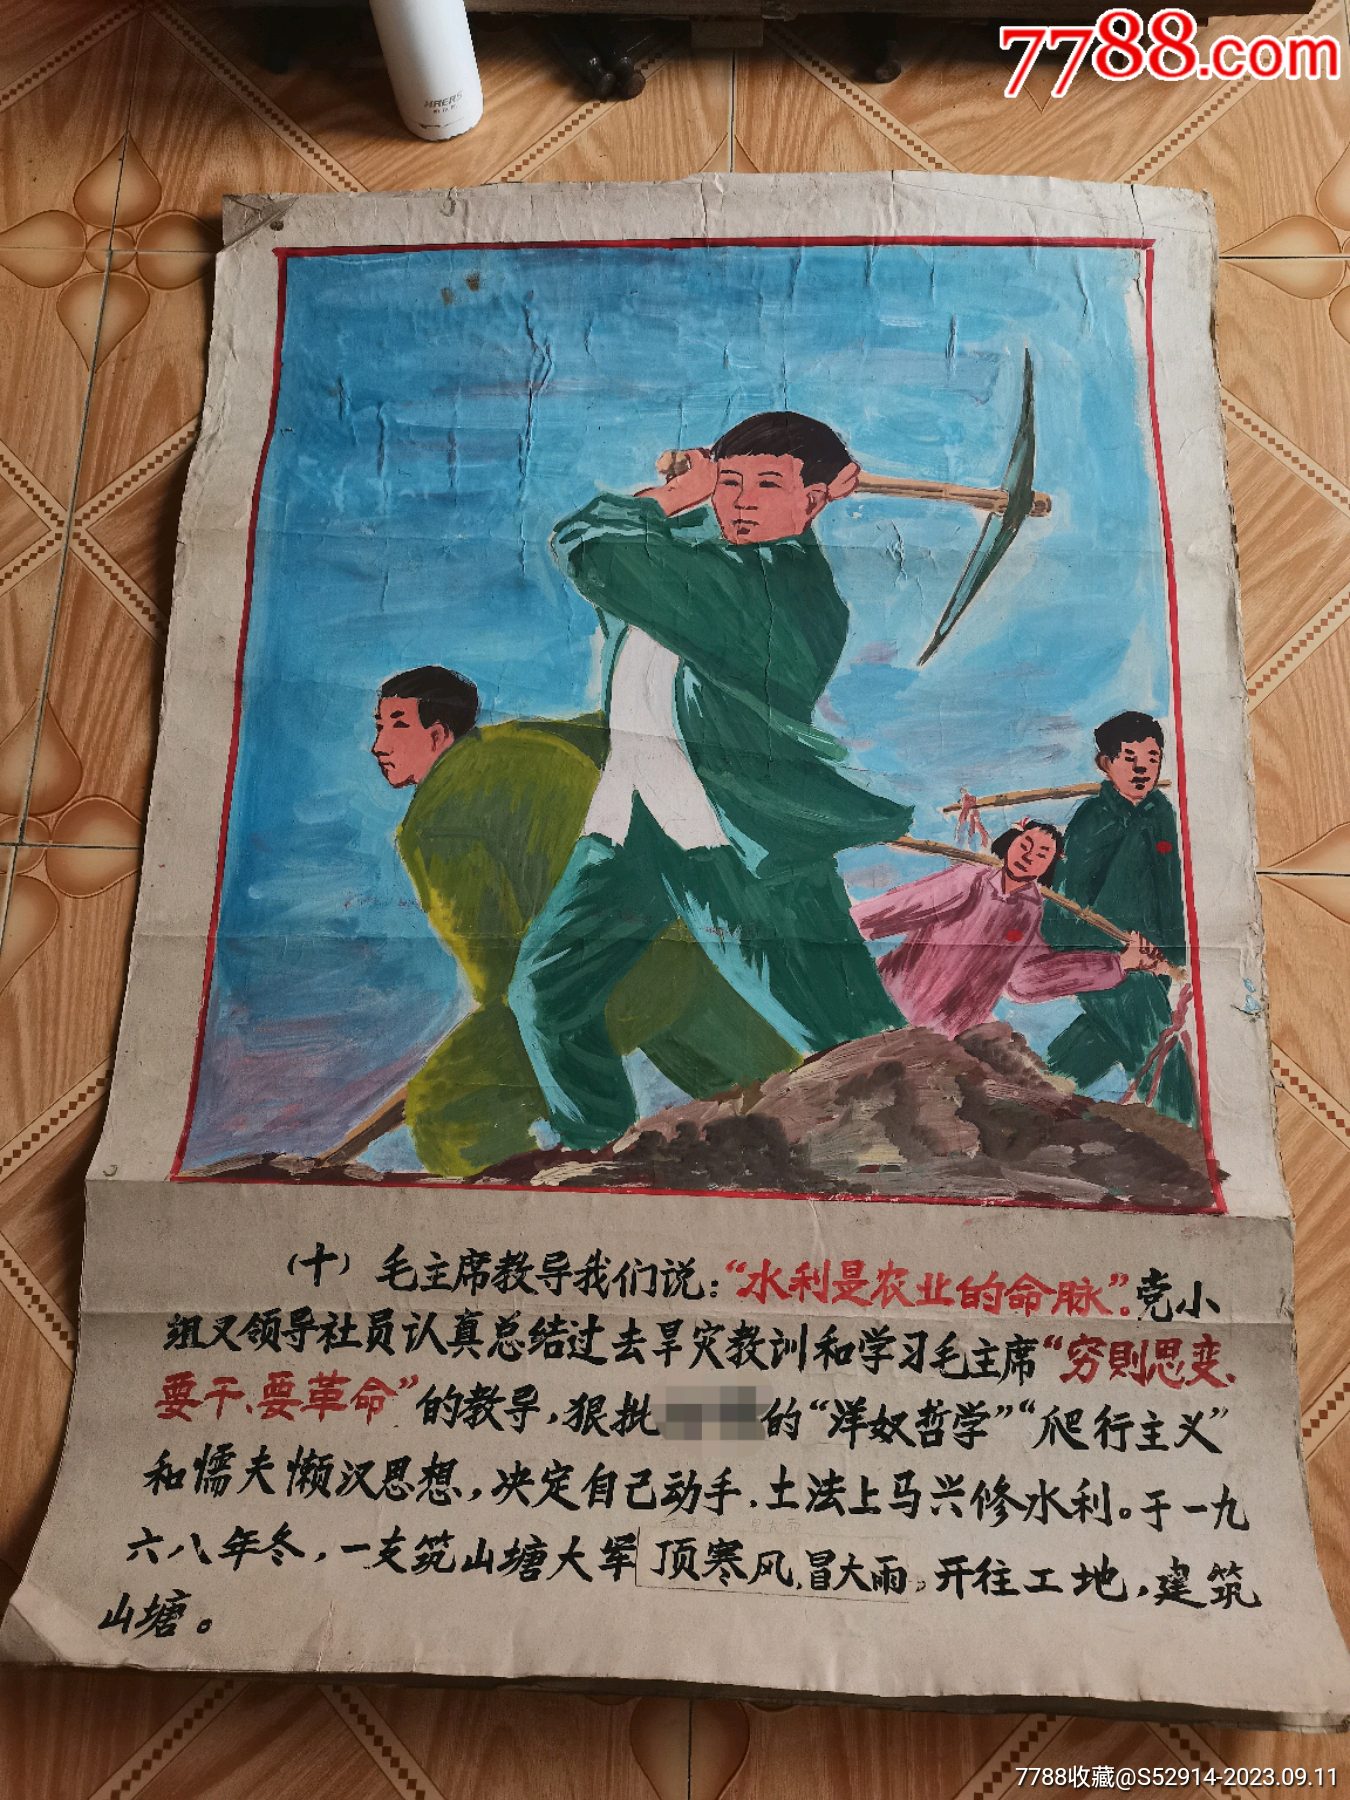 7788.com
HAERS
（十）毛主席教导我们说："水利是农业的命脉"。党小
组又领导社员认真总结过去旱灾教训和学习毛主席"穷则思变，
要干、要革命"的教导，狠批的"洋奴哲学""爬行主义"
和懦夫懒汉思想，决定自己动手，土法上马兴修水利。于一九
六八年冬，一支筑山塘大军顶寒风，冒大雨，开往工地，建筑
山塘。
7788收藏@S52914-2023.09.11